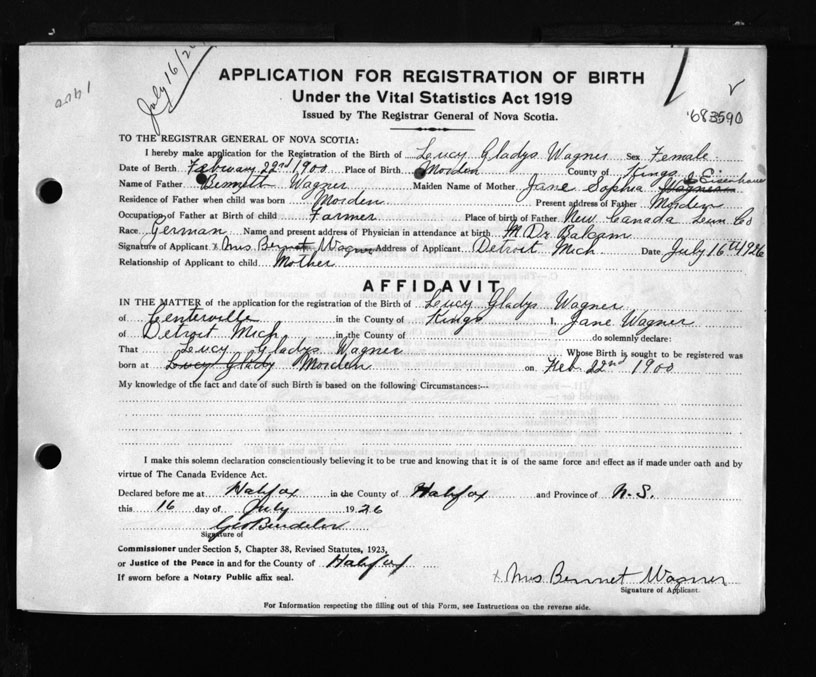 July 16/26
1900
APPLICATION FOR REGISTRATION OF BIRTH
Under the Vital Statistics Act 1919
Issued by The Registrar General of Nova Scotia.
683590
TO THE REGISTRAR GENERAL OF NOVA SCOTIA:
I hereby make application for the Registration of the Birth of Lucy Gladys Wagner Sex Female
Date of Birth February 22nd 1900 Place of Birth Morden County of Kings
Name of Father Bennett Wagner Maiden Name of Mother Jane Sophia Wagner Eisenhauer
Residence of Father when child was born Morden Present address of Father Morden
Occupation of Father at Birth of child Farmer Place of birth of Father New Canada Lun. Co
Race German Name and present address of Physician in attendance at birth M. Dr. Balcam
Signature of Applicant x Mrs Bennet Wagner Address of Applicant Detroit Mich Date July 16th 1926
Relationship of Applicant to child Mother
AFFIDAVIT
IN THE MATTER of the application for the registration of the Birth of Lucy Gladys Wagner
of Centerville in the County of Kings I, Jane Wagner
of Detroit Mich in the County of do solemnly declare:
That Lucy Gladys Wagner Whose Birth is sought to be registered was
born at Lucy Glady Morden on Feb. 22nd 1900
My knowledge of the fact and date of such Birth is based on the following Circumstances:--
I make this solemn declaration conscientiously believing it to be true and knowing that it is of the same force and effect as if made under oath and by
virtue of The Canada Evidence Act.
Declared before me at Halifax in the County of Halifax and Province of N.S.
this 16 day of July 1926
Signature of
Commissioner under Section 5, Chapter 38, Revised Statutes, 1923,
or Justice of the Peace in and for the County of Halifax
If sworn before a Notary Public affix seal.
x Mrs Bennet Wagner
Signature of Applicant.
For Information respecting the filling out of this Form, see Instructions on the reverse side.